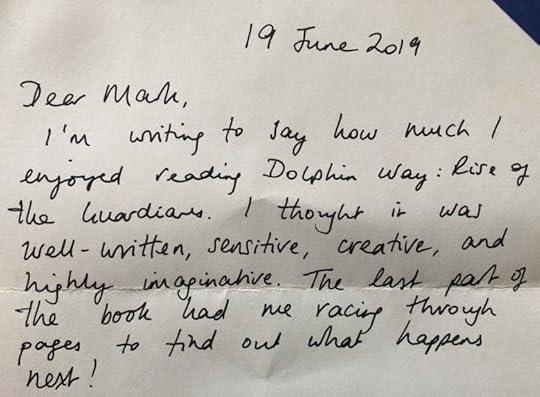 19 June 2019
Dear Mark,
I'm writing to say how much I
enjoyed reading Dolphin Way: Rise of
the Guardians. I thought it was
well-written, sensitive, creative, and
highly imaginative. The last part of
the book had me racing through
pages to find out what happens
next!